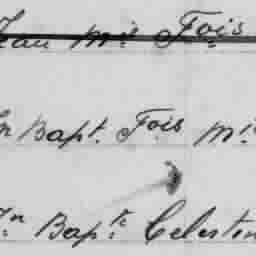 Jean Mie Fois
Jn Bapt. Fois Mie
Jn Bapte Celestin